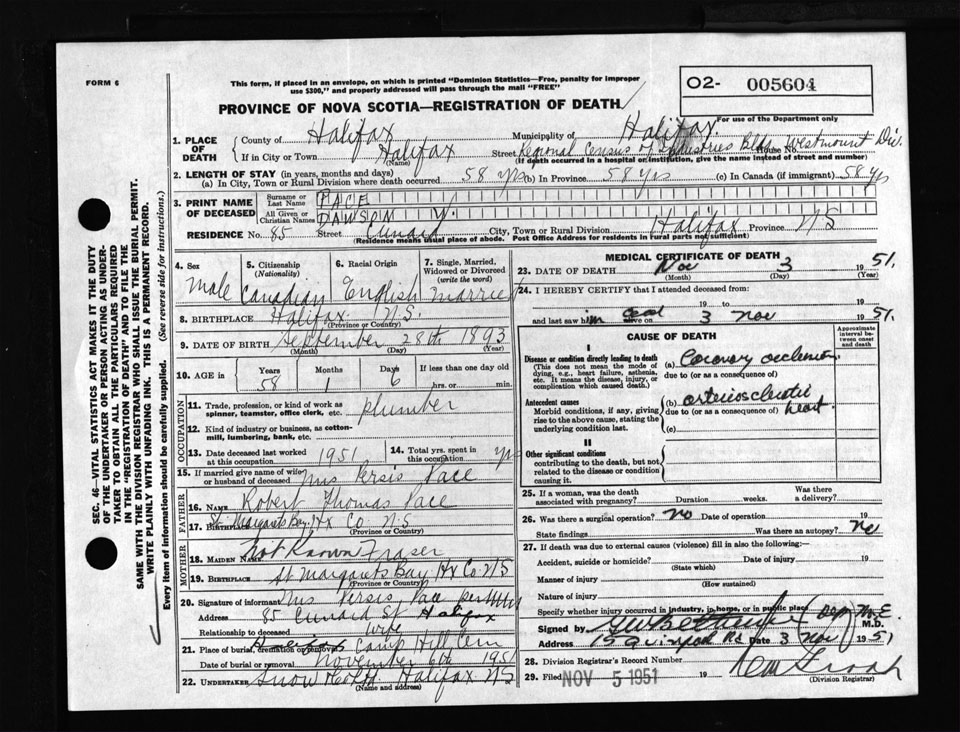 FORM 6
This form, if placed in an envelope, on which is printed "Dominion Statistics—Free, penalty for improper
use $300," and properly addressed will pass through the mail "FREE"
O2- 005604
PROVINCE OF NOVA SCOTIA—REGISTRATION OF DEATH
For use of the Department only
1. PLACE OF DEATH
County of Halifax Municipality of Halifax
If in City or Town Halifax Street Regional Census of Industries Bldg House No. Westmount Div.
(Name) (If death occurred in a hospital or institution, give the name instead of street and number)
2. LENGTH OF STAY (in years, months and days)
(a) In City, Town or Rural Division where death occurred 58 yrs (b) In Province 58 yrs (c) In Canada (if immigrant) 58 yrs
3. PRINT NAME OF DECEASED
Surname or Last Name PACE
All Given or Christian Names DAWSON W.
RESIDENCE No. 85 Street Cunard City, Town or Rural Division Halifax Province NS
(Residence means usual place of abode. Post Office Address for residents in rural parts not sufficient)
SEC. 46—VITAL STATISTICS ACT MAKES IT THE DUTY
OF THE UNDERTAKER OR PERSON ACTING AS UNDER-
TAKER TO OBTAIN ALL THE PARTICULARS REQUIRED
IN THE "REGISTRATION OF DEATH" AND TO FILE THE
SAME WITH THE DIVISION REGISTRAR WHO SHALL ISSUE THE BURIAL PERMIT.
WRITE PLAINLY WITH UNFADING INK. THIS IS A PERMANENT RECORD.
Every item of information should be carefully supplied. (See reverse side for instructions.)
4. Sex
Male
5. Citizenship
(Nationality)
Canadian
6. Racial Origin
English
7. Single, Married,
Widowed or Divorced
(write the word)
Married
8. BIRTHPLACE Halifax N.S.
(Province or Country)
9. DATE OF BIRTH September 28th 1893
(Month) (Day) (Year)
10. AGE in Years Months Days If less than one day old
58 1 6 hrs. or min.
OCCUPATION
11. Trade, profession or kind of work as
spinner, teamster, office clerk, etc. plumber
12. Kind of industry or business, as cotton-
mill, lumbering, bank, etc.
13. Date deceased last worked
at this occupation 1951
14. Total yrs. spent in
this occupation yrs
15. If married give name of wife
or husband of deceased Mrs Persis Pace
FATHER
16. NAME Robert Thomas Pace
17. BIRTHPLACE St Margarets Bay Hx Co N.S
(Province or Country)
MOTHER
18. MAIDEN NAME Not Known Fraser
19. BIRTHPLACE St Margarets Bay Hx Co NS
(Province or Country)
20. Signature of informant Mrs Persis Pace per
Address 85 Cunard St Halifax
Relationship to deceased Wife
21. Place of burial, cremation or removal Camp Hill Cem
Date of burial or removal November 6th 1951
22. UNDERTAKER Snow & Co Halifax NS
(Name and address)
MEDICAL CERTIFICATE OF DEATH
23. DATE OF DEATH Nov 3 1951.
(Month) (Day)
24. I HEREBY CERTIFY that I attended deceased from:
19 to 19
and last saw him dead alive on 3 Nov 1951.
CAUSE OF DEATH
Approximate
interval be-
tween onset
and death
I
Disease or condition directly leading to death
(This does not mean the mode of
dying, e.g., heart failure, asthenia,
etc. It means the disease, injury, or
complication which caused death.)
(a) Coronary occlusion
due to (or as a consequence of)
Antecedent causes
Morbid conditions, if any, giving
rise to the above cause, stating the
underlying condition last.
(b) arteriosclerotic
due to (or as a consequence of) heart
(c)
II
Other significant conditions
contributing to the death, but not
related to the disease or condition
causing it.
25. If a woman, was the death
associated with pregnancy? Duration weeks. Was there
a delivery?
26. Was there a surgical operation? No Date of operation 19
State findings Was there an autopsy? No
27. If death was due to external causes (violence) fill in also the following:—
Accident, suicide or homicide? Date of injury 19
(State which)
Manner of injury
(How sustained)
Nature of injury
Specify whether injury occurred in industry, in home, or in public place
Signed by M.E. M.D.
Address 15 Quinpool Rd Date 3 Nov 1951
28. Division Registrar's Record Number
29. Filed NOV 5 1951 19
(Division Registrar)